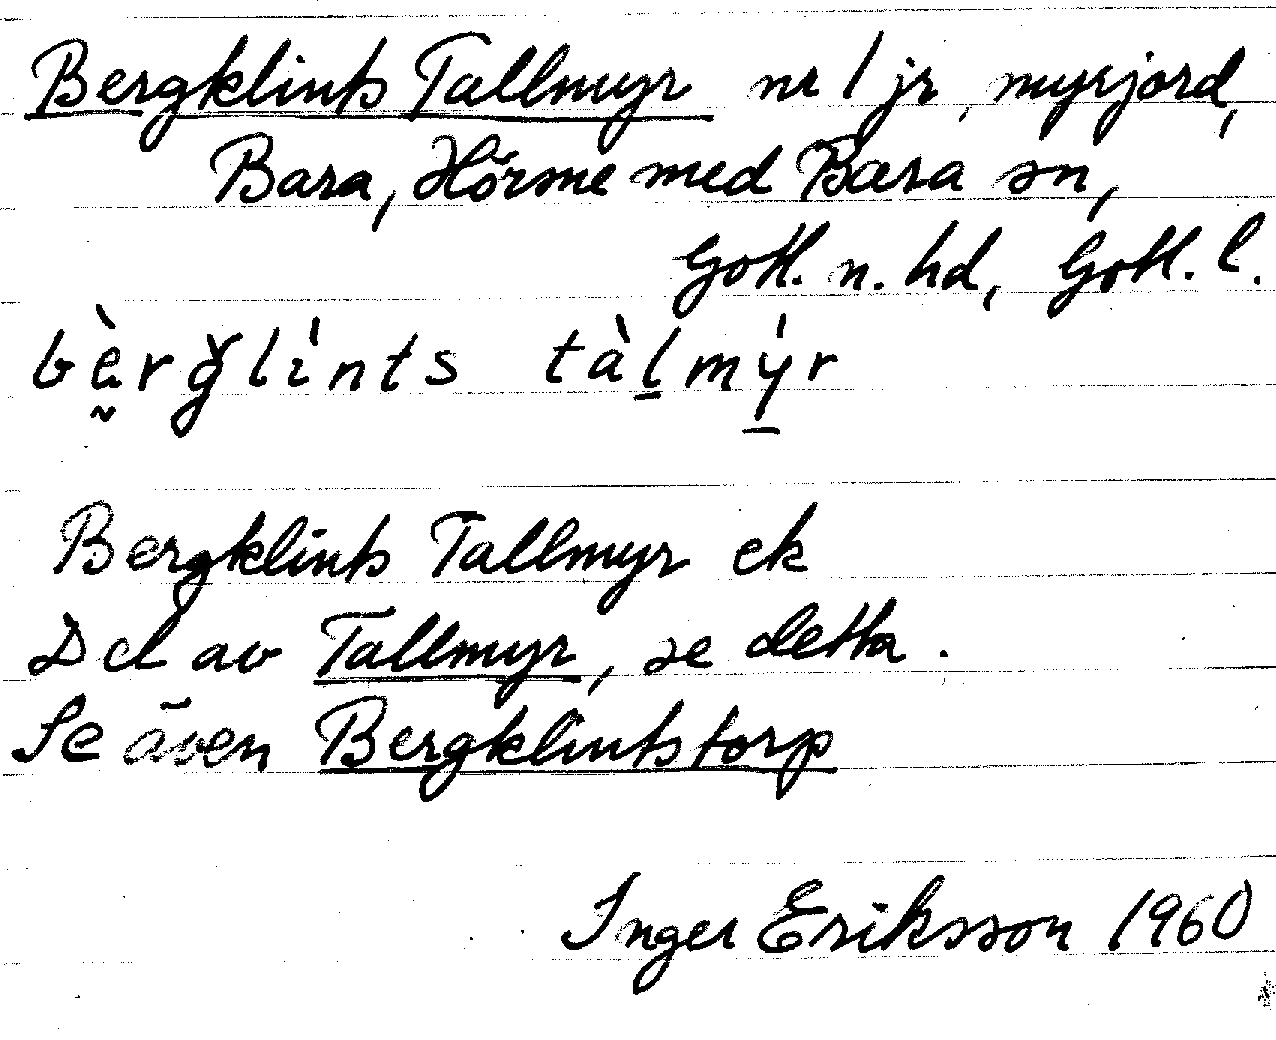 Bergklints Tallmyr nr 1 jr, myrjord,
Bara, Hörsne med Bara sn,
Gotl. n. hd, Gotl. l.
bèrglints tàlmýr
Bergklints Tallmyr ek
Del av Tallmyr, se detta.
Se även Bergklintstorp
Inger Eriksson 1960